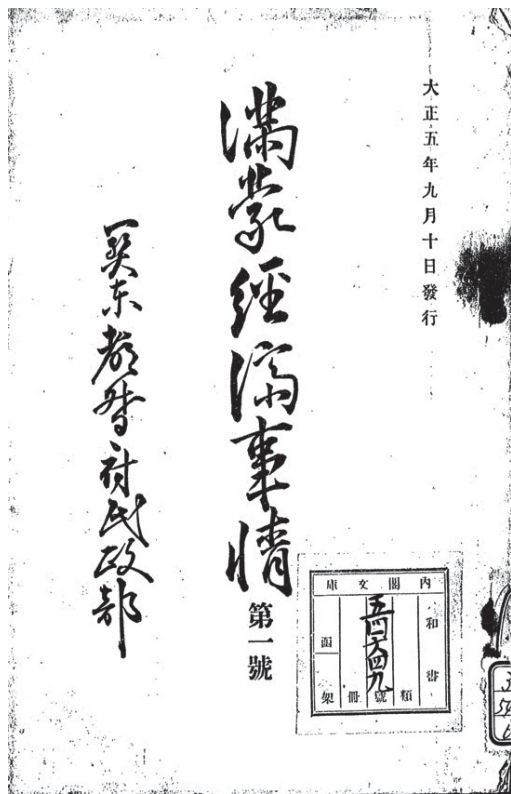 大正五年九月十日發行
滿蒙經濟事情 第一號
關东都督府民政部
內閣文庫
和書
五四六四九
類
號
冊
函
架